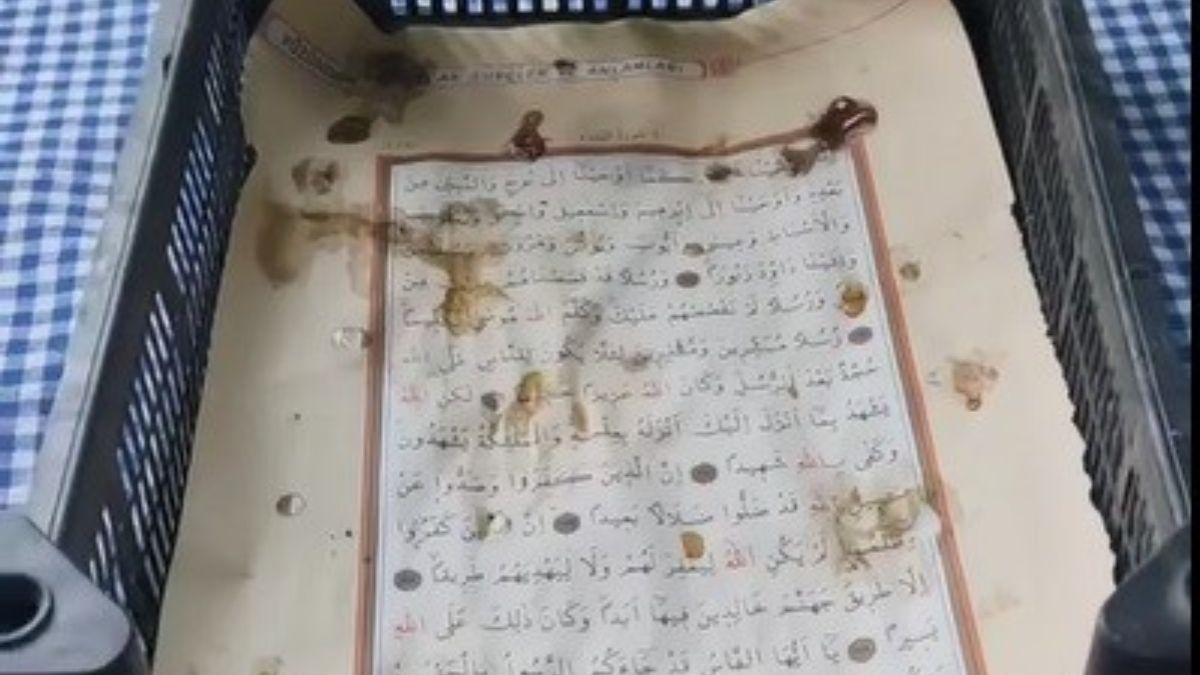 ANLAMLARI
كَمَٓا اَوْحَيْنَٓا اِلٰى نُوحٍ وَالنَّبِيّٖنَ مِنْ
بَعْدِهٖ وَاَوْحَيْنَٓا اِلٰٓى اِبْرٰهٖيمَ وَاِسْمٰعٖيلَ
وَالْاَسْبَاطِ وَعٖيسٰى وَاَيُّوبَ وَيُونُسَ وَهٰرُونَ
وَاٰتَيْنَا دَاوُ۫دَ زَبُوراً وَرُسُلاً قَدْ قَصَصْنَاهُمْ مِنْ
وَرُسُلاً لَمْ نَقْصُصْهُمْ عَلَيْكَ وَكَلَّمَ اللّٰهُ مُوسٰى
رُسُلاً مُبَشِّرٖينَ وَمُنْذِرٖينَ لِئَلَّا يَكُونَ لِلنَّاسِ عَلَى اللّٰهِ
حُجَّةٌ بَعْدَ الرُّسُلِ وَكَانَ اللّٰهُ عَزٖيزاً لٰكِنِ اللّٰهُ
يَشْهَدُ بِمَٓا اَنْزَلَ اِلَيْكَ اَنْزَلَهُ بِعِلْمِهٖ وَالْمَلٰٓئِكَةُ يَشْهَدُونَ
وَكَفٰى بِاللّٰهِ شَهٖيداً اِنَّ الَّذٖينَ كَفَرُوا وَصَدُّوا عَنْ
اللّٰهِ قَدْ ضَلُّوا ضَلَالاً بَعٖيداً اِنَّ الَّذٖينَ كَفَرُوا
وَظَلَمُوا لَمْ يَكُنِ اللّٰهُ لِيَغْفِرَ لَهُمْ وَلَا لِيَهْدِيَهُمْ طَرٖيقاً
اِلَّا طَرٖيقَ جَهَنَّمَ خَالِدٖينَ فٖيهَٓا اَبَداً وَكَانَ ذٰلِكَ عَلَى اللّٰهِ
يَسٖيراً يَٓا اَيُّهَا النَّاسُ قَدْ جَٓاءَكُمُ الرَّسُولُ بِالْحَقِّ